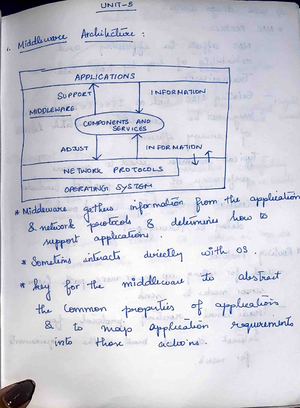 UNIT-5
1. Middleware Architecture :
APPLICATIONS
SUPPORT INFORMATION
MIDDLEWARE
COMPONENTS AND
SERVICES
ADJUST INFORMATION
NETWORK PROTOCOLS
OPERATING SYSTEM
* Middleware gathers information from the application
& network protocols & determines how to
support applications.
* Sometimes interacts directly with OS.
* Key for the middleware to abstract
the common properties of application
& to map application requirements
into those actions.